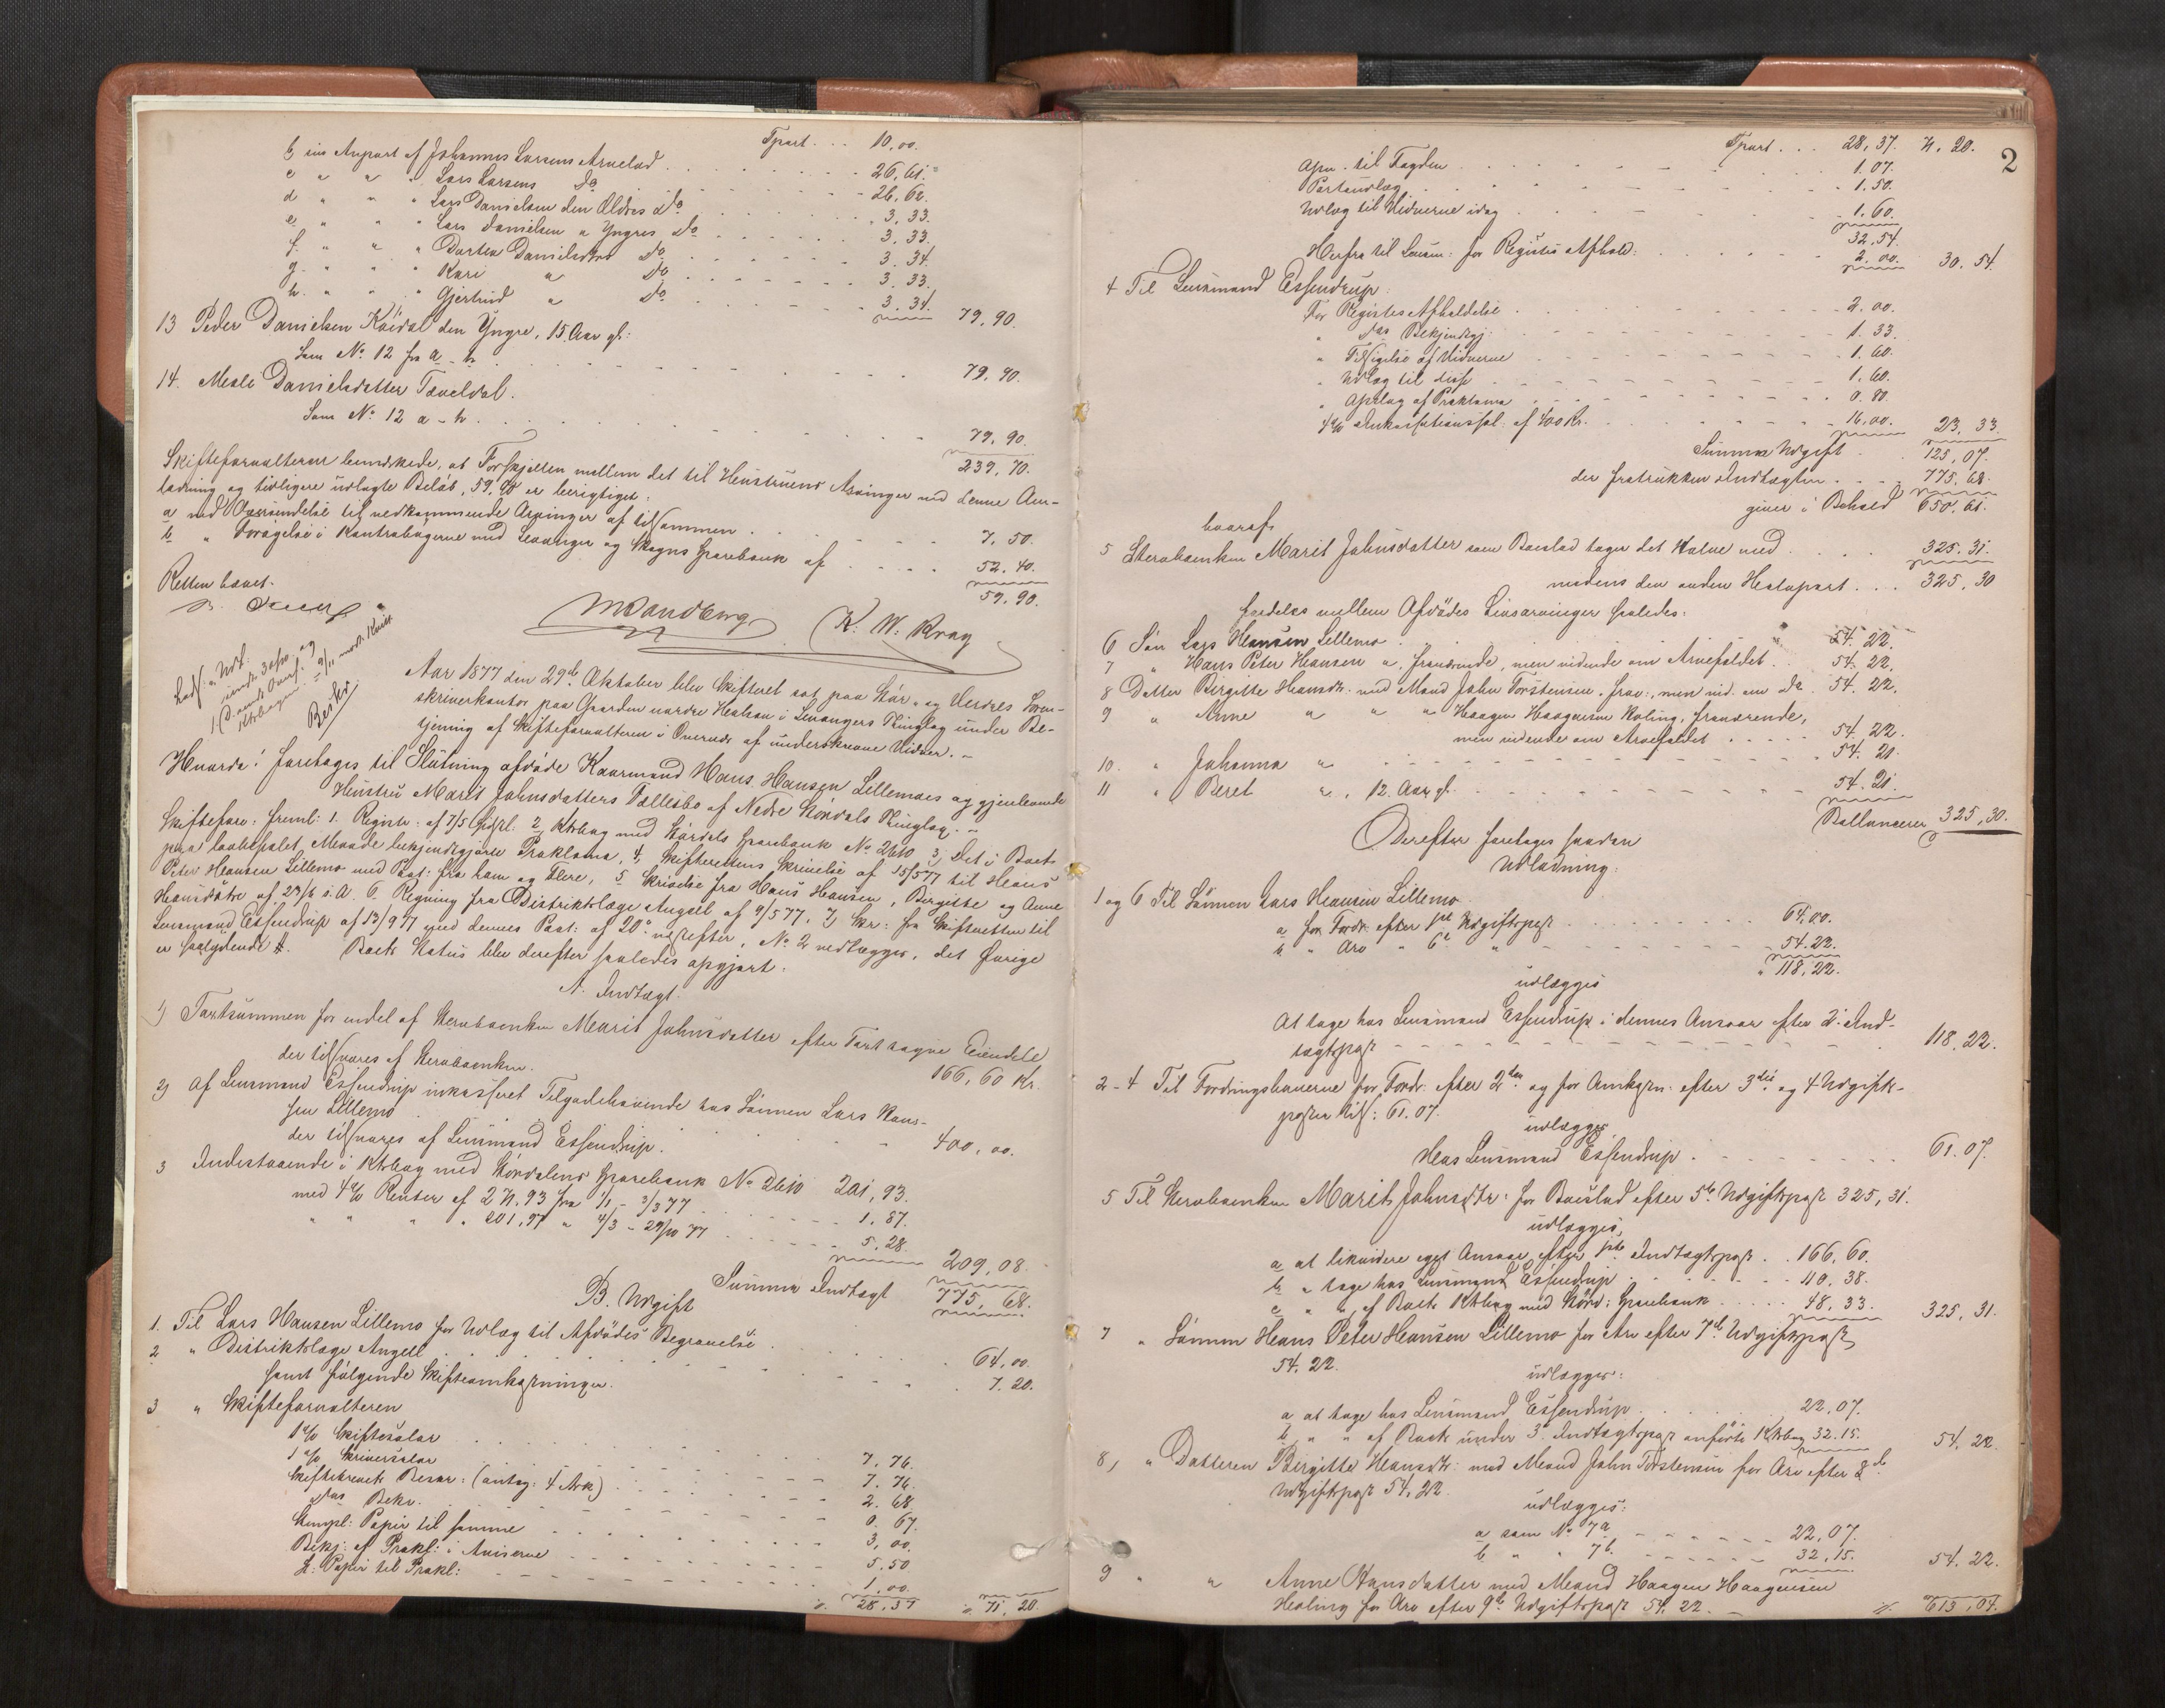 Tpart . . . 10,00.
b, sin Anpart af Johannes Larsens Arvelod . . . 26,61.
c " " " Lars Larsens Do . . . 26,62.
d " " " Lars Danielsen den Ældres Do . . . 3,33.
e " " " Lars Danielsen " Yngres Do . . . 3.33.
f. " " " Dortea Danielsdtrs Do . . . 3.34.
g. " " " Kari " Do . . . 3.33.
h. " " " Gjertrud " Do . . . 3.34. 79,90.
13 Peder Danielsen den Yngre, 15 Aar gl:
Som No 12 fra a - h . . . 79,90.
14. Danielsdatter
Som No 12 a - h . . . 79,90.
239,70.
Skifteforvalteren bemærkede, at Forskjellen mellem det til Hustruens Arvinger ved denne Om-
lodning og tidligere udlagte Beløb, 59,90 er berigtiget:
a ved Oversendelse til vedkommende Arvinger af tilsammen . . . 7,50.
b " Forøgelse i Kontrabøgerne med Levanger og Skogns Sparebank af . . . 52.40.
59,90.
Retten hævet.
K. W. Krag
Aar 1877 den 29de Oktober blev Skifteret sat paa Stør- og Værdals Soren-
skriverkontor paa Gaarden nordre Halsan i Levangers Thinglag under Be-
tjening af Skifteforvalteren i Overvær af underskrevne Vidner. -
Hvorda: foretages til Slutning afdøde Kaarmand Hans Hansen Lillemoes og gjenlevende
Hustru Marit Johnsdatters Fællesbo af Nedre Stjørdals Thinglag. -
Skifteforv: freml: 1. Registr: af 7/5 2, Ktrbog med Størdals Sparebank No 2610 3, Det i Boets
paa lovbefalet Maade bekjendtgjorte Proklama, 4, Skifterettens Skrivelse af 15/5 77 til Hans
Peter Hansen Lillemo med Paat: fra ham og Flere, 5 Skrivelse fra Hans Hansen, Birgitte og Anne
Hansdøtre af 23/6 s. A. 6. Regning fra Distriktslæge Angell af 9/5 77, 7, Skr: fra Skifteretten til
Lensmand Essendrup af 13/9 77 med dennes Paat: af 20de næstefter, No 2 vedlægges, det Øvrige
er saalydende #. Boets Status blev derefter saaledes opgjort.
A. Indtægt.
1) Taxtsummen for endel af Sterboenken Marit Johnsdatter efter Taxt tagne Eiendele
der tilsvares af Sterboenken. 166,60 Kr.
2) Af Lensmand Essendrup inkasseret Tilgodehavende hos Sønnen Lars Han-
sen Lillemo . . . 400,00.
der tilsvares af Lensmand Essendrup.
3 Indestaaende i Ktrbog med Stördalens Sparebank No 2610 201,93.
med 4% Renter af 271.93 fra 1/1 - 3/3 77 . . . 1.87.
" " " " 201,97 " 4/3 - 29/10 77 . . . 5.28. 209,08.
Summa Indtægt 775,68.
B. Udgift
1. Til Lars Hansen Lillemo for Udlæg til Afdødes Begravelse . . . 64,00
2 " Distriktslæge Angell . . . 7.20.
samt følgende Skifteomkostninger.
3 " Skifteforvalteren
1% Skiftesalær . . . 7,76.
1% Skriversalær . . . 7.76.
Skiftebrevets Beskr: (antag: 4 Ark) . . . 2.68
Bekr. . . . 0.67.
Stempl: Papir til samme . . . 3,00.
Bekj: af Prokl: i Aviserne . . . 5,50
St: Papir til Prokl: . . . 1.00.
28,37 71,20.
2
Tpart . . . 28,37. 71.20.
til Fogden . . . 1.07.
Portoudlæg . . . 1.50.
Udlæg til Vidnerne idag . . . 1.60.
32,54.
Herfra til Lensm: for Registrs Afhold: . . . 2.00. 30.54.
4 Til Lensmand Essendrup:
For Registrs Afholdelse . . . 2.00.
" Bekjendtgj: . . . 1.33.
" Tilsigelse af Vidnerne . . . 1.60.
" Udlæg til disse . . . 1.60.
" Opslag af Proklama . . . 0.80.
4% Inkassationssal: af 400 Kr. . . . 16,00. 23.33.
Summa Udgift . . . 125,07.
der fratrukken Indtægten . . . 775.68.
giver i Behold 650.61.
hvoraf
5 Sterboenken Marit Johnsdatter som Boeslod tager det Halve med . . . 325.31.
medens den anden Halvpart . . . 325,30
fordeles mellem Afdødes Livsarvinger saaledes:
6 Søn Lars Hansen Lillemo . . . 54.22.
7 " Hans Peter Hansen " , fraværende, men vidende om Arvefaldet . . . 54.22.
8 Datter Birgitte Hansdtr. med Mand John Torstensen, frav:, men vid. om Do . 54.22.
9 " Anne " " " Haagen Haagensen Holing, fraværende,
men vidende om Arvefaldet . . . 54.22.
10. " Johanna " . . . 54.21.
11 " Beret " , 12. Aar gl. . . . 54.21.
Ballancerer 325,30.
Derefter foretages saadan
Udlodning:
1 og 6 Til Sønnen Lars Hansen Lillemo
a for Fordr. efter 1ste Udgiftspost . . . 64,00.
b " Arv " 6te " . . . 54.22.
118,22.
udlægges
At tage hos Lensmand Essendrup i dennes Ansvar efter 2. Ind-
tægtspost . . . 118.22.
2-4 Til Fordringshaverne for Fordr: efter 2den og for Omkostn: efter 3die og 4 Udgifts-
poster tils: 61.07.
udlægges
Hos Lensmand Essendrup . . . 61.07.
5 Til Sterboenken Marit Johnsdtr: for Boeslod efter 5te Udgiftspost 325,31.
udlægges,
a at likvidere eget Ansvar efter 1ste Indtægtspost . . 166,60.
b " tage hos Lensmand Essendrup . . . 110.38.
c " " af Boets Ktrbog med Størd: Sparebank . . . 48.33. 325,31.
7 " Sønnen Hans Peter Hansen Lillemo for Arv efter 7de Udgiftspost
54.22.
udlægges:
a at tage hos Lensmand Essendrup . . . 22,07.
b " " af Boets under 3. Indtægtspost anførte Ktrbog 32.15. 54.22.
8, " Datteren Birgitte Hansdtr: med Mand John Torstensen for Arv efter 8de
Udgiftspost 54.22.
udlægges:
a som No 7a . . . 22,07.
b " " 7b. . . . 32,15. 54.22.
9 " " Anne Hansdatter med Mand Haagen Haagensen
Holing for Arv efter 9de Udgiftspost 54.22. 613,04.